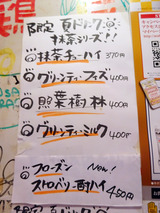 限定 夏ドリンク
抹茶シリーズ!!
抹茶チューハイ 370円
グリーンティーフィズ 400円
照葉樹林 400円
グリーンティーミルク 400円
フローズン New!
ストロベリー酎ハイ 450円